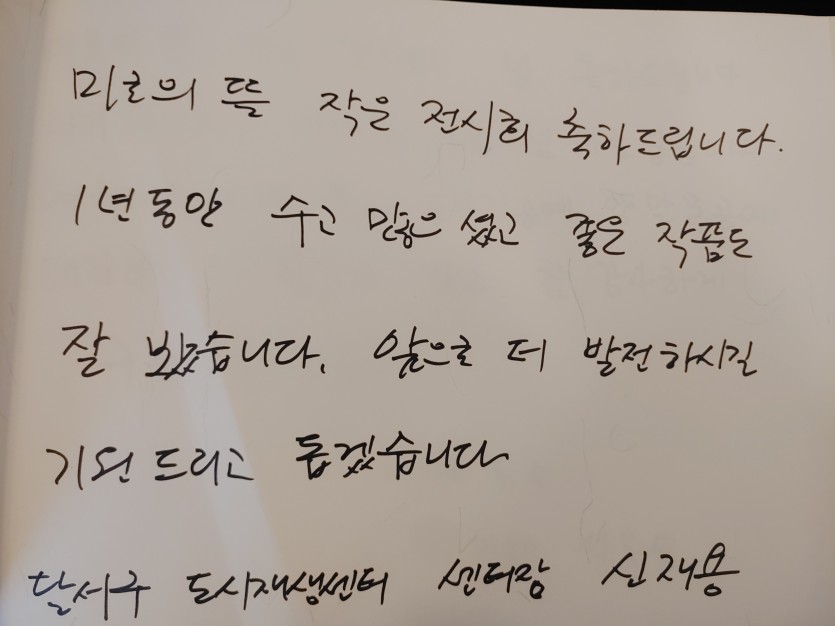 미로의 뜰 작은 전시회 축하드립니다.
1년동안 수고 많으셨고 좋은 작품도
잘 봤습니다. 앞으로 더 발전하시길
기원 드리고 돕겠습니다
달서구 도시재생센터 센터장 신재용